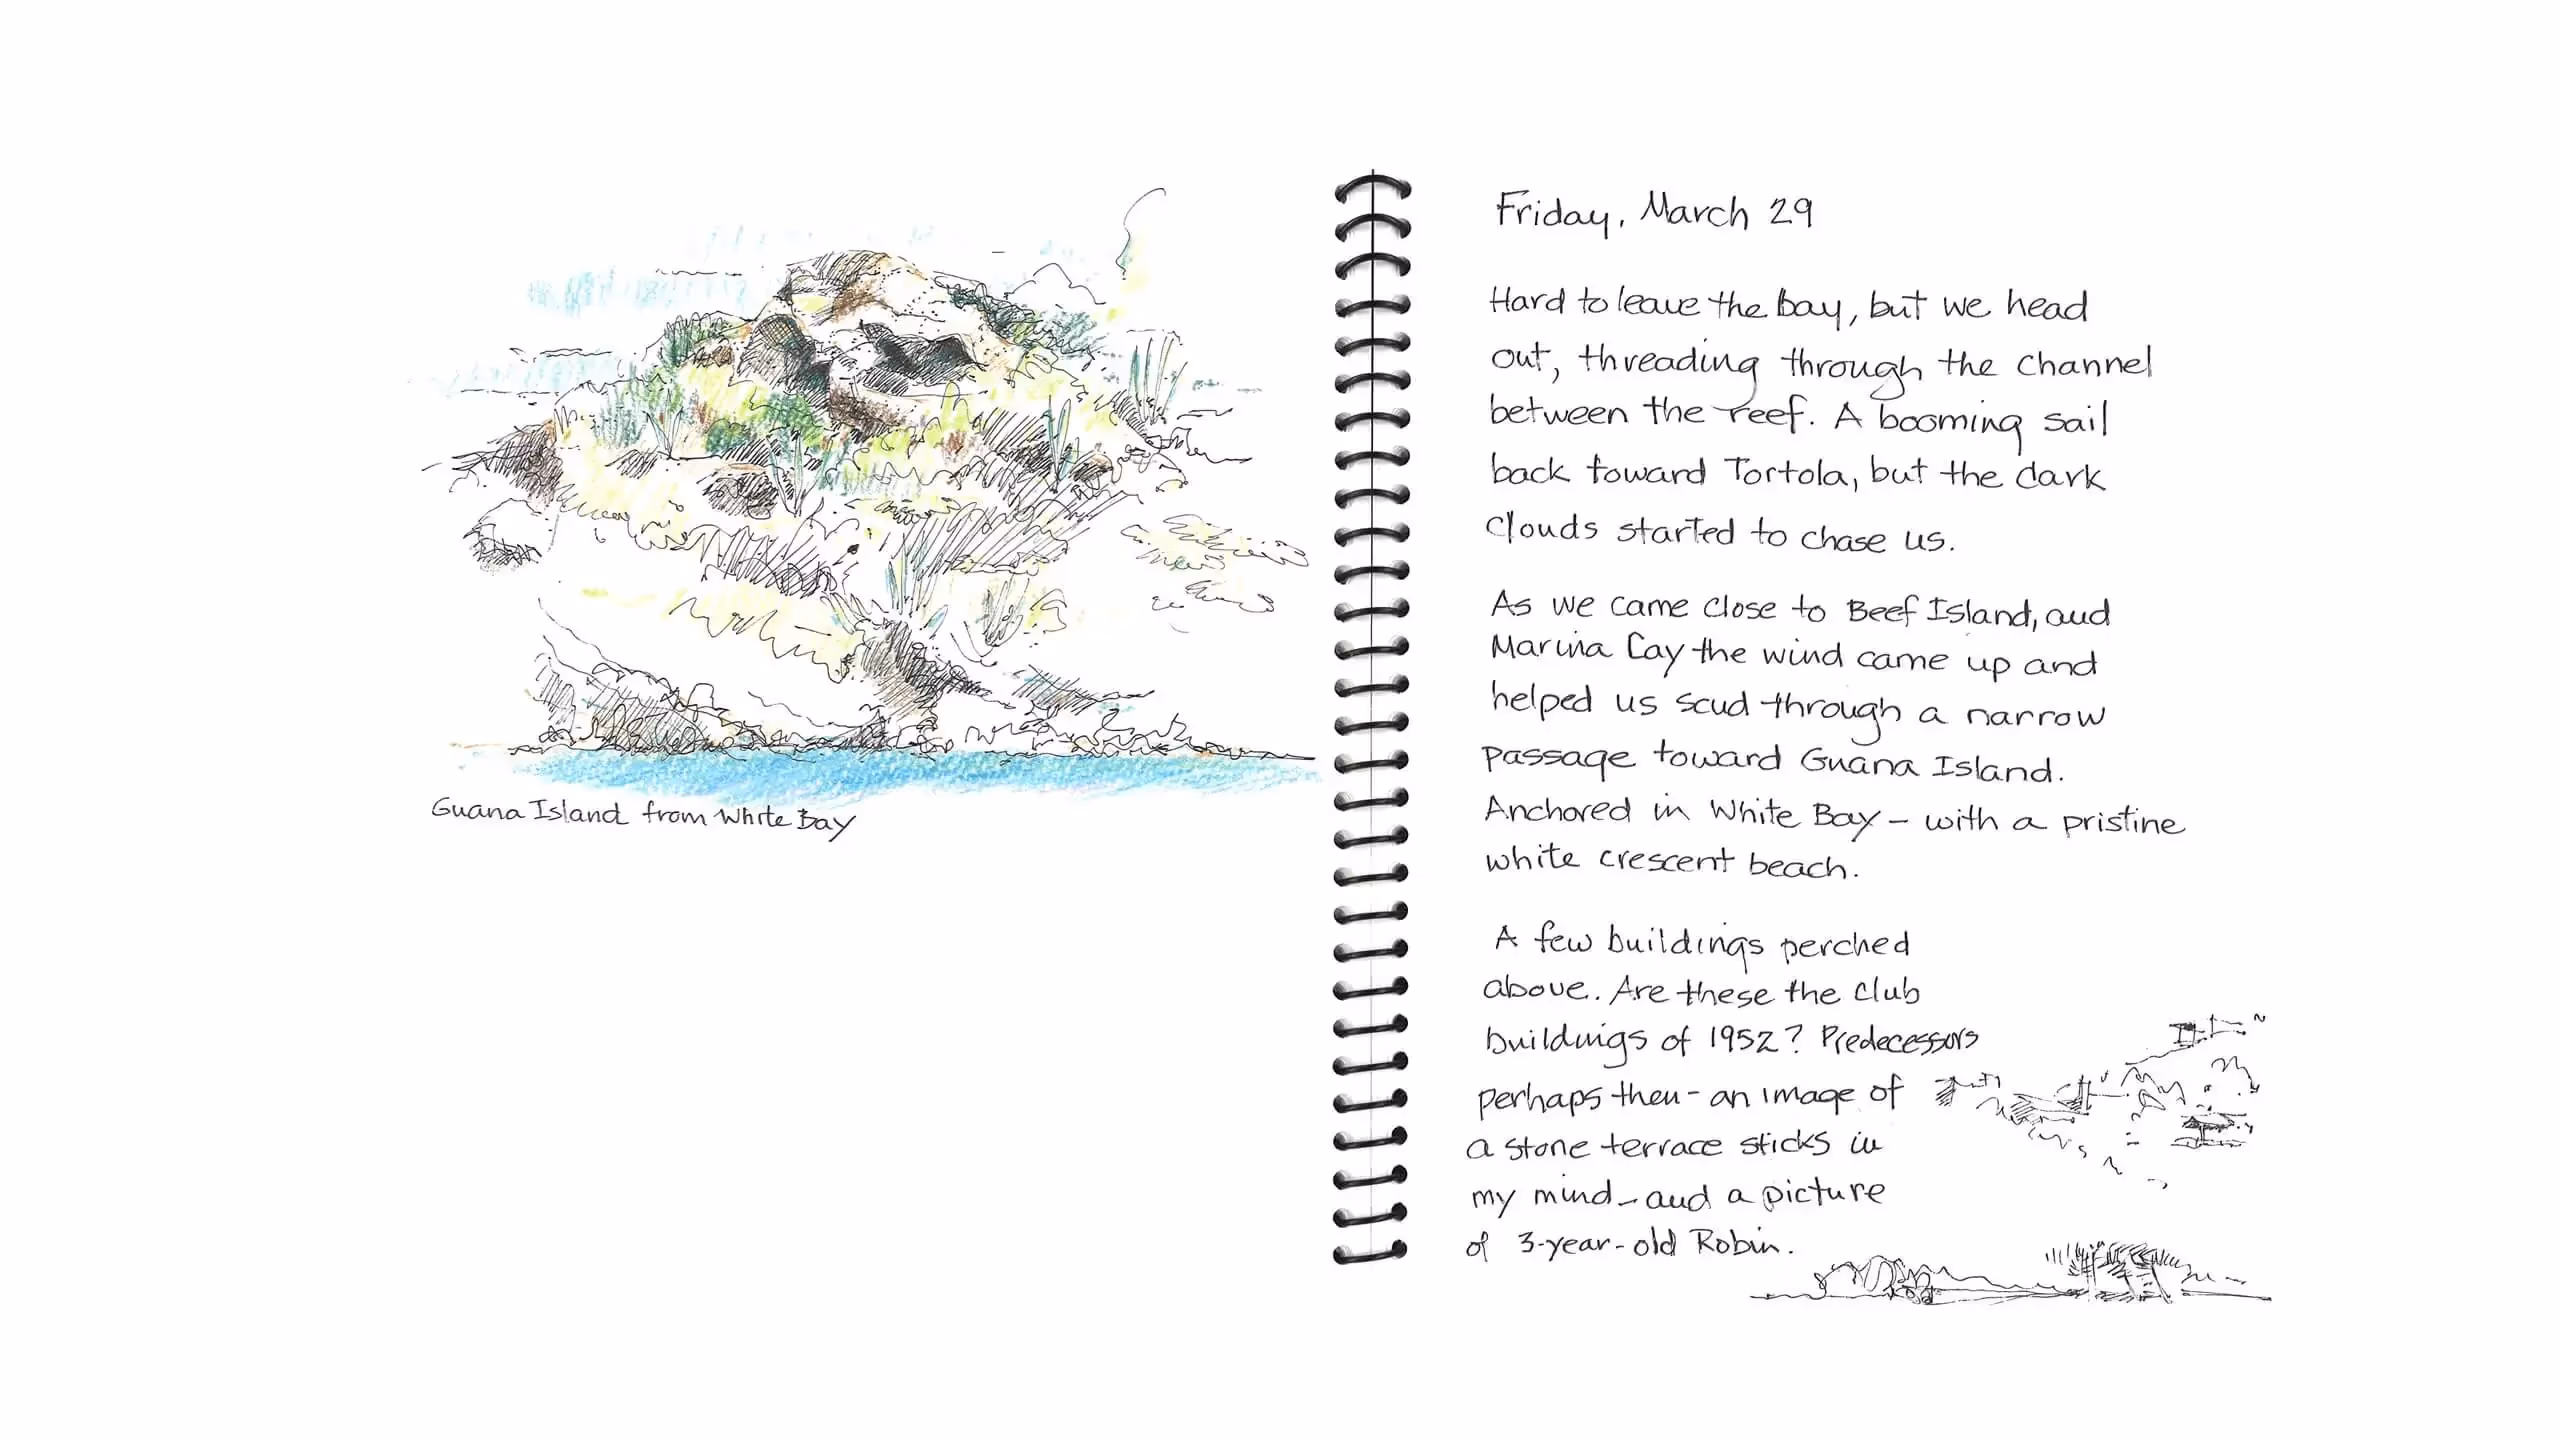 Guana Island from White Bay
Friday, March 29
Hard to leave the bay, but we head
out, threading through the channel
between the reef. A booming sail
back toward Tortola, but the dark
clouds started to chase us.
As we came close to Beef Island, and
Marina Cay the wind came up and
helped us scud through a narrow
passage toward Guana Island.
Anchored in White Bay – with a pristine
white crescent beach.
A few buildings perched
above. Are these the club
buildings of 1952? Predecessors
perhaps then – an image of
a stone terrace sticks in
my mind – and a picture
of 3-year-old Robin.